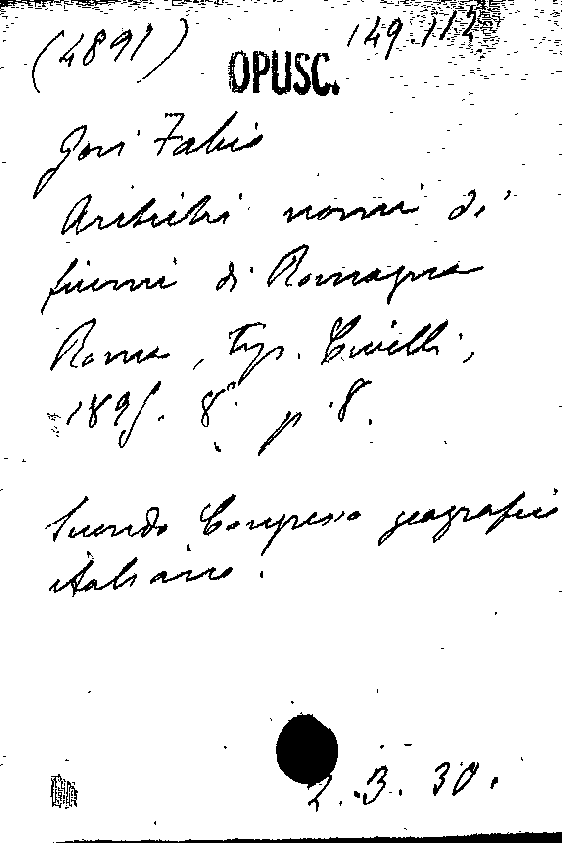 (4891) 149.112
OPUSC.
Gori Fabio
nomi di
fiumi di Romagna
Roma, typ. Civelli,
1895. 8° p. 8.
Secondo Congresso geografico
italiano.
2.3.30.